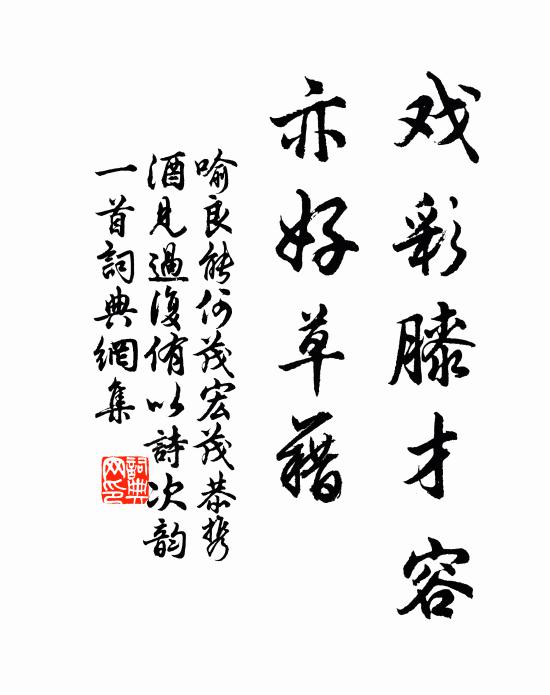 戏彩膝才容
亦好草藉
喻良能何茂宏茂恭携
酒见過復侑以詩次韵
一首詞典網集
詞典
网印